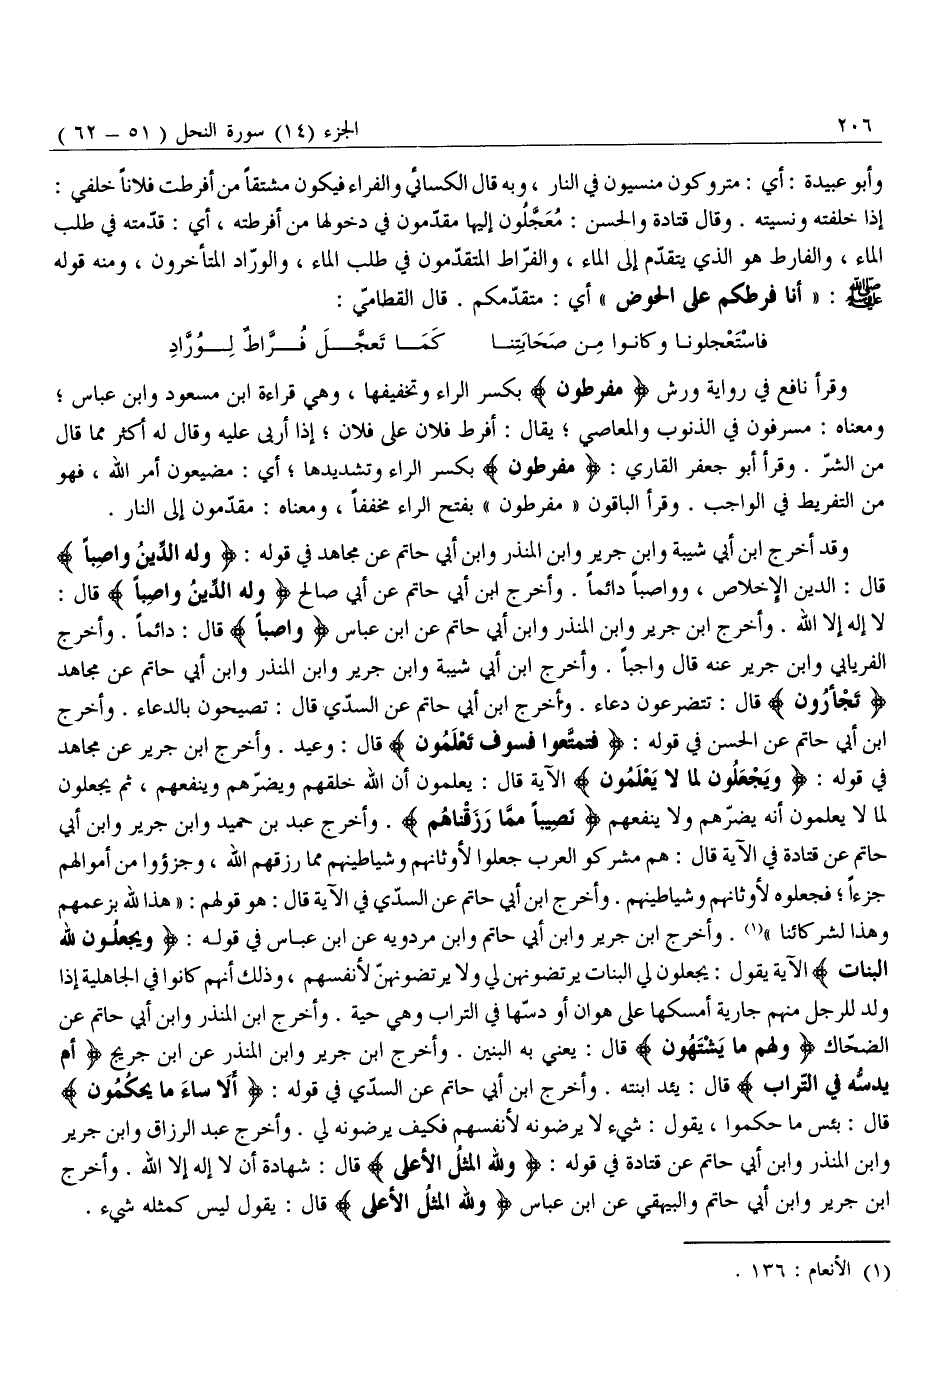 ٢٠٦ الجزء (١٤) سورة النحل ( ٥١ – ٦٢ )
وأبو عبيدة : أي : متروكون منسيون في النار ، وبه قال الكسائي والفراء فيكون مشتقاً من أفرطت فلاناً خلفي :
إذا خلفته ونسيته . وقال قتادة والحسن : مُعَجَّلُون إليها مقدمون في دخولها من أفرطته ، أي : قدّمته في طلب
الماء ، والفارط هو الذي يتقدّم إلى الماء ، والفّراط المتقدّمون في طلب الماء ، والورّاد المتأخرون ، ومنه قوله
ﷺ : « أنا فرطكم على الحوض » أي : متقدّمكم . قال القطاميّ :
فاسْتَعْجلونـا وكانـوا مِـن صَحَابَتِنـا كَمَـا تَعجَّـلَ فُـرَّاطٌ لِـوُرَّادِ
وقرأ نافع في رواية ورش ﴿ مفرطون ﴾ بكسر الراء وتخفيفها ، وهي قراءة ابن مسعود وابن عباس ؛
ومعناه : مسرفون في الذنوب والمعاصي ؛ يقال : أفرط فلان على فلان ؛ إذا أربى عليه وقال له أكثر مما قال
من الشرّ . وقرأ أبو جعفر القاري : ﴿ مفرطون ﴾ بكسر الراء وتشديدها ؛ أي : مضيعون أمر الله ، فهو
من التفريط في الواجب . وقرأ الباقون « مفرطون » بفتح الراء مخففاً ، ومعناه : مقدّمون إلى النار .
وقد أخرج ابن أبي شيبة وابن جرير وابن المنذر وابن أبي حاتم عن مجاهد في قوله : ﴿ وله الدِّينُ واصباً ﴾
قال : الدين الإخلاص ، وواصباً دائماً . وأخرج ابن أبي حاتم عن أبي صالح ﴿ وله الدِّينُ واصِباً ﴾ قال :
لا إله إلا الله . وأخرج ابن جرير وابن المنذر وابن أبي حاتم عن ابن عباس ﴿ واصباً ﴾ قال : دائماً . وأخرج
الفريابي وابن جرير عنه قال واجباً . وأخرج ابن أبي شيبة وابن جرير وابن المنذر وابن أبي حاتم عن مجاهد
﴿ تَجْأَرُون ﴾ قال : تتضرعون دعاء . وأخرج ابن أبي حاتم عن السدّي قال : تصيحون بالدعاء . وأخرج
ابن أبي حاتم عن الحسن في قوله : ﴿ فتمتَّعوا فسوف تَعْلَمُون ﴾ قال : وعيد . وأخرج ابن جرير عن مجاهد
في قوله : ﴿ ويَجْعَلُون لما لا يَعْلَمُون ﴾ الآية قال : يعلمون أن الله خلقهم ويضرّهم وينفعهم ، ثم يجعلون
لما لا يعلمون أنه يضرّهم ولا ينفعهم ﴿ نَصِيباً ممَّا رَزَقْناهُم ﴾ . وأخرج عبد بن حميد وابن جرير وابن أبي
حاتم عن قتادة في الآية قال : هم مشركو العرب جعلوا لأوثانهم وشياطينهم مما رزقهم الله ، وجزؤوا من أموالهم
جزءاً ؛ فجعلوه لأوثانهم وشياطينهم . وأخرج ابن أبي حاتم عن السدّي في الآية قال : هو قولهم : « هذا لله بزعمهم
وهذا لشركائنا »(١) . وأخرج ابن جرير وابن أبي حاتم وابن مردويه عن ابن عباس في قوله : ﴿ ويجعلُون لله
البنات ﴾ الآية يقول : يجعلون لي البنات يرتضونهن لي ولا يرتضونهنّ لأنفسهم ، وذلك أنهم كانوا في الجاهلية إذا
ولد للرجل منهم جارية أمسكها على هوان أو دسّها في التراب وهي حية . وأخرج ابن المنذر وابن أبي حاتم عن
الضحّاك ﴿ ولهم ما يَشْتَهُون ﴾ قال : يعني به البنين . وأخرج ابن جرير وابن المنذر عن ابن جريج ﴿ أم
يدسُّه في التّراب ﴾ قال : يئد ابنته . وأخرج ابن أبي حاتم عن السدّي في قوله : ﴿ أَلَا ساءَ ما يحكُمُون ﴾
قال : بئس ما حكموا ، يقول : شيء لا يرضونه لأنفسهم فكيف يرضونه لي . وأخرج عبد الرزاق وابن جرير
وابن المنذر وابن أبي حاتم عن قتادة في قوله : ﴿ ولله المثلُ الأعلى ﴾ قال : شهادة أن لا إله إلا الله . وأخرج
ابن جرير وابن أبي حاتم والبيهقي عن ابن عباس ﴿ ولله المثلُ الأعلى ﴾ قال : يقول ليس كمثله شيء .
(١) الأنعام : ١٣٦ .